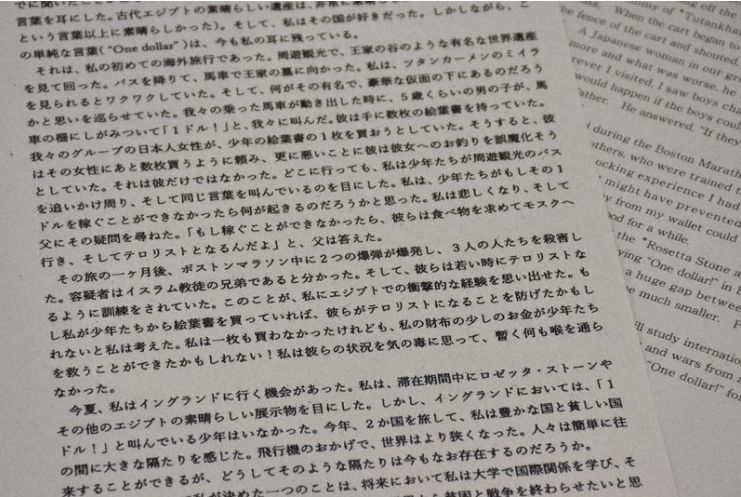 でに聞いたこと
言葉を耳にした。古代エジプトの素晴らしい遺産は、非常に
という言葉以上に素晴らしかった)。そして、私はその国が好きだった。しかしながら、こ
の単純な言葉(“One dollar”)は、今も私の耳に残っている。
それは、私の初めての海外旅行であった。周遊観光で、王家の谷のような有名な世界遺産
を見て回った。バスを降りて、馬車で王家の墓に向かった。私は、ツタンカーメンのミイラ
を見られるとワクワクしていた。そして、何がその有名で、豪華な仮面の下にあるのだろう
かと思いを巡らせていた。我々の乗った馬車が動き出した時に、5歳くらいの男の子が、馬
車の柵にしがみついて「1ドル!」と、我々に叫んだ。彼は手に数枚の絵葉書を持っていた。
我々のグループの日本人女性が、少年の絵葉書の1枚を買おうとしていた。そうすると、彼
はその女性にあと数枚買うように頼み、更に悪いことに彼は彼女へのお釣りを誤魔化そう
としていた。それは彼だけではなかった。どこに行っても、私は少年たちが周遊観光のバス
を追いかけ周り、そして同じ言葉を叫んでいるのを目にした。私は、少年たちがもしその1
ドルを稼ぐことができなかったら何が起きるのだろうかと思った。私は悲しくなり、そして
父にその疑問を尋ねた。「もし稼ぐことができなかったら、彼らは食べ物を求めてモスクへ
行き、そしてテロリストとなるんだよ」と、父は答えた。
その旅の一ヶ月後、ボストンマラソン中に2つの爆弾が爆発し、3人の人たちを殺害し
た。容疑者はイスラム教徒の兄弟であると分かった。そして、彼らは若い時にテロリストな
るように訓練をされていた。このことが、私にエジプトでの衝撃的な経験を思い出せた。も
し私が少年たちから絵葉書を買っていれば、彼らがテロリストになることを防げたかもし
れないと私は考えた。私は一枚も買わなかったけれども、私の財布の少しのお金が少年たち
を救うことができたかもしれない!私は彼らの状況を気の毒に思って、暫く何も喉を通ら
なかった。
今夏、私はイングランドに行く機会があった。私は、滞在期間中にロゼッタ・ストーンや
その他のエジプトの素晴らしい展示物を目にした。しかし、イングランドにおいては、「1
ドル!」と叫んでいる少年はいなかった。今年、2か国を旅して、私は豊かな国と貧しい国
の間に大きな隔たりを感じた。飛行機のおかげで、世界はより狭くなった。人々は簡単に往
来することができるが、どうしてそのような隔たりは今もなお存在するのだろうか。
私が決めた一つのことは、将来において私は大学で国際関係を学び、そ
貧困と戦争を終わらせたいと思
ing off the
mask. When the cart began to
he fence of the cart and shouted.
A Japanese woman in our gro
more and what was worse, he
ever I visited, I saw boys cha
would happen if the boys coul
father. He answered, "If they
d during the Boston Marath
others, who were trained t
ocking experience I had
might have prevented
y from my wallet could
ood for a while.
the "Rosetta Stone a
ying "One dollar!" in E
a huge gap between
e much smaller. P
ill study internation
and wars from a
"One dollar!" fo